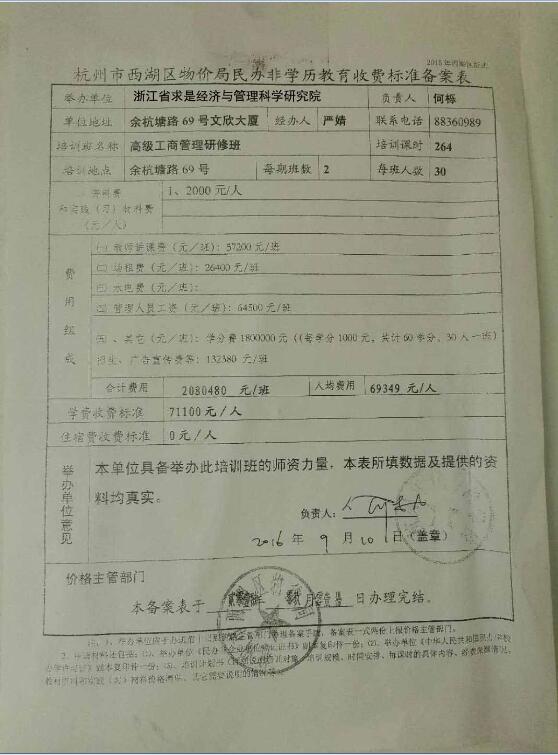 杭州市西湖区物价局民办非学历教育收费标准备案表
举办单位 浙江省求是经济与管理科学研究院 负责人 何栎
单位地址 余杭塘路69号文欣大厦 经办人 严婧 联系电话 88360989
培训班名称 高级工商管理研修班 培训课时 264
培训地点 余杭塘路69号 每期班数 2 每班人数 30
和实践(习)材料费 1、2000元/人
(元/人)
费用组成
㈠ 教师讲课费(元/班): 57200元/班
㈡ 场租费(元/班): 26400元/班
㈢ 水电费(元/班):
㈣ 管理人员工资(元/班): 64500元/班
、其它(元/班): 学分费1800000元((每学分1000元,共计60学分、30人一班)
招生、广告宣传费等: 132380元/班
合计费用 2080480 元/班 人均费用 69349元/人
学费收费标准 71100元/人
住宿费收费标准 0元/人
举办单位意见
本单位具备举办此培训班的师资力量,本表所填数据及提供的资
料均真实。
负责人:
2016年9月10日(盖章)
价格主管部门
本备案表于 年 月 日办理完结。